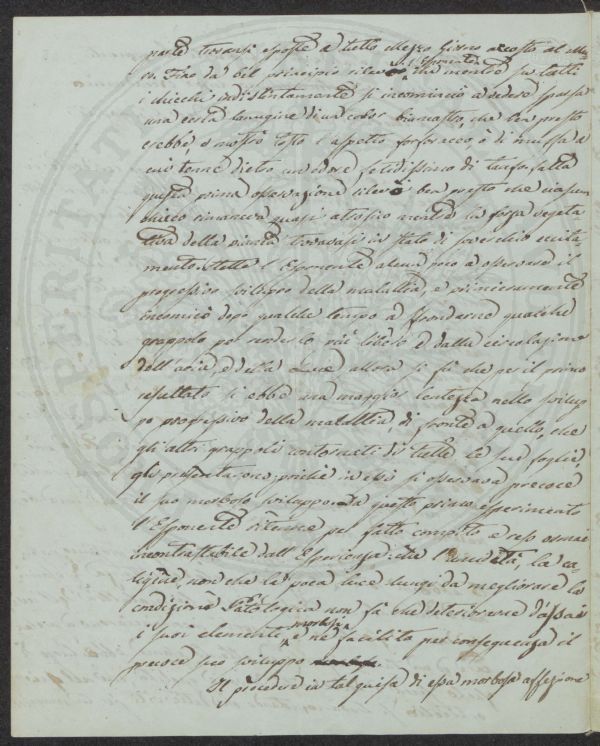 parte trovansi esposte a tutto Mezzo Giorno accosto al
Fino da bel principio rilevò l'Esponente che mentre su tutti
i chicchi indistintamente si incominciò a vedere sparsa
una certa lanugine di un color biancastro, che ben presto
crebbe, e mostrò tosto l'aspetto forforaceo, o di muffa a
cui tenne dietro un odore fetidissimo di tanfo, fatta
questa prima osservazione rilevò ben presto che ciascun
chicco rimaneva quasi atrofico mentre la forza vegeta
tiva della pianta trovavasi in stato di soverchio eccita
mento. Stette l'Esponente alcun poco a osservare il
progressivo sviluppo della malattia, e primieramente
incominciò dopo qualche tempo a sfrondarne qualche
grappolo per renderlo più libero e dalla circolazione
dell'aria e della Luce allora si fù che per il primo
resultato si ebbe una maggior lentezza nello svilup
po progressivo della malattia di fronte a quello, che
gli altri grappoli contornati di tutte le sue foglie,
gli presentarono, poichè in essi si osservava precoce
il suo morboso sviluppo. Da questo primo esperimento
l'Esponente ritenne per fatto compito e reso ormai
incontrastabile dall'Esperienza che l'umidità, la ca
ligine non che la poca luce lungi da migliorare la
condizione Patologica non fà che deteriorare d'assai
i suoi elementi morbosi e ne facilita per conseguenza il
precoce suo sviluppo
Il procedere in tal guisa di essa morbosa affezione